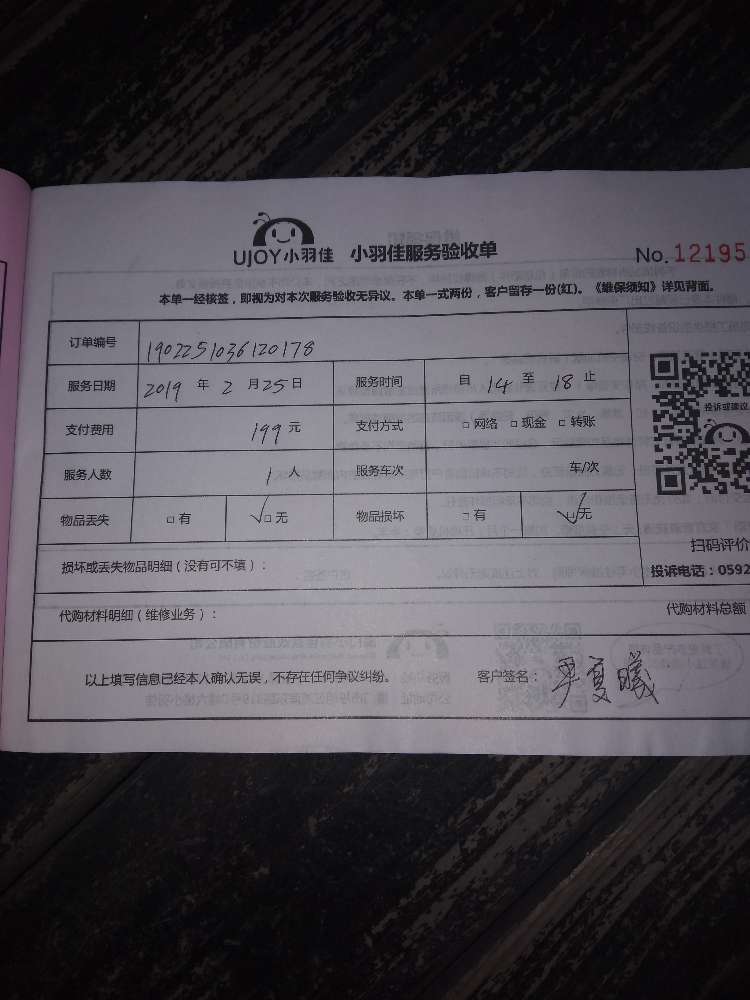 UJOY小羽佳 小羽佳服务验收单 No.12195
本单一经核签,即视为对本次服务验收无异议。本单一式两份,客户留存一份(红)。《维保须知》详见背面。
订单编号 1902251036120178
服务日期 2019 年 2 月 25 日 服务时间 自 14 至 18 止
投诉或建议
支付费用 199 元 支付方式 □网络 □现金 □转账
服务人数 1 人 服务车次 车/次
物品丢失 □有 ✓□无 物品损坏 □有 ✓□无
扫码评价
损坏或丢失物品明细(没有可不填): 投诉电话:0592
代购材料明细(维修业务): 代购材料总额
以上填写信息已经本人确认无误,不存在任何争议纠纷。 客户签名: